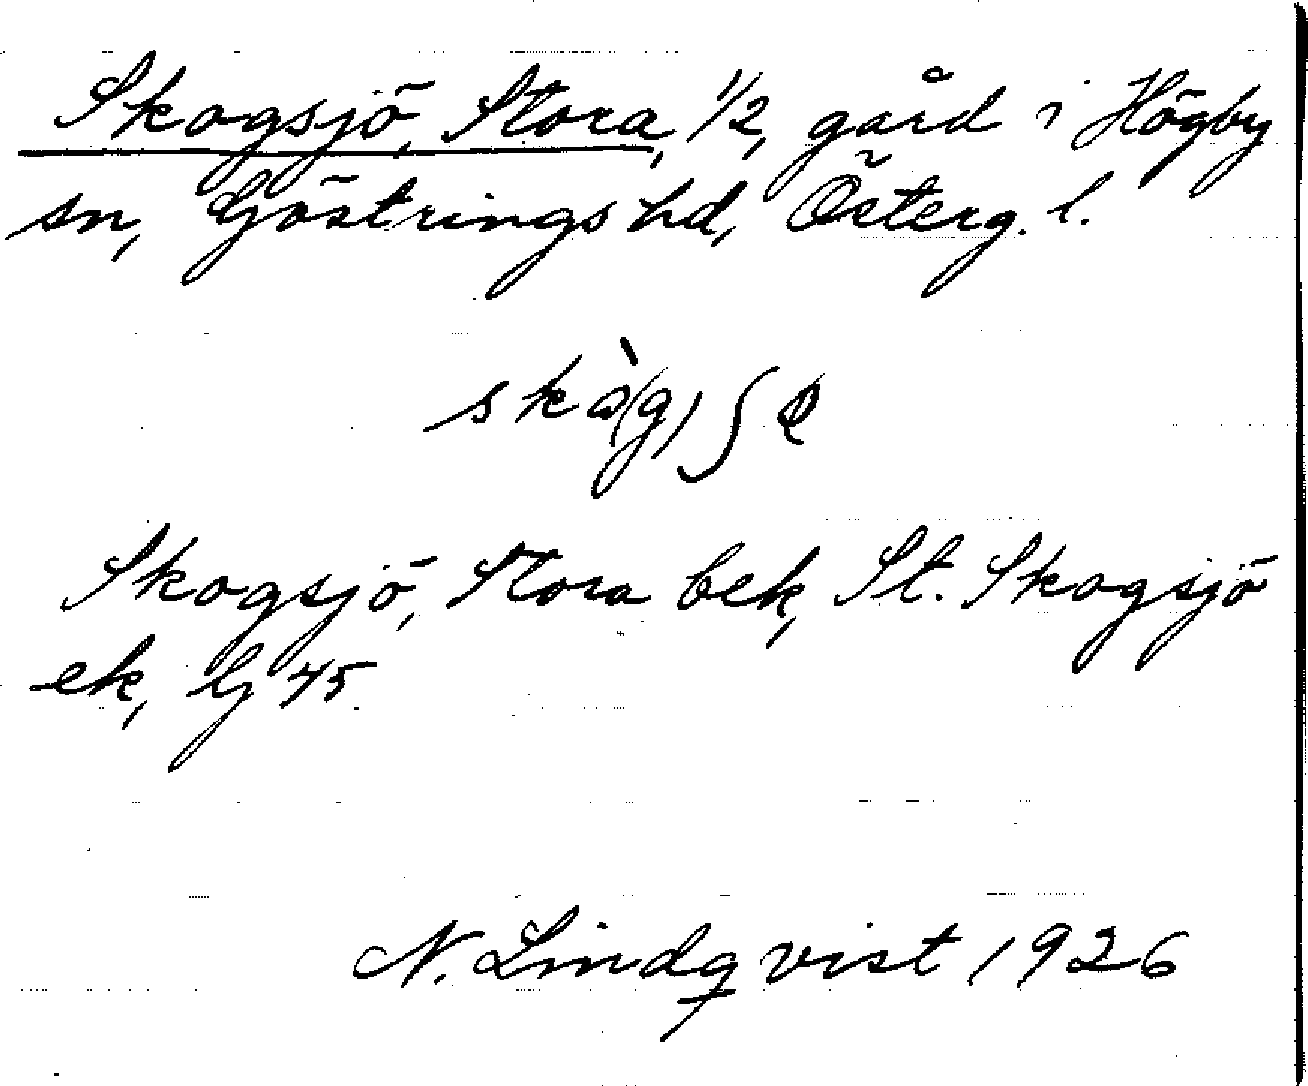 Skogsjö, Stora, 1/2, gård i Högby
sn, Göstrings hd, Österg. l.
Skogsjö, Stora bek, St. Skogsjö
ek, G 45.
N. Lindqvist 1926